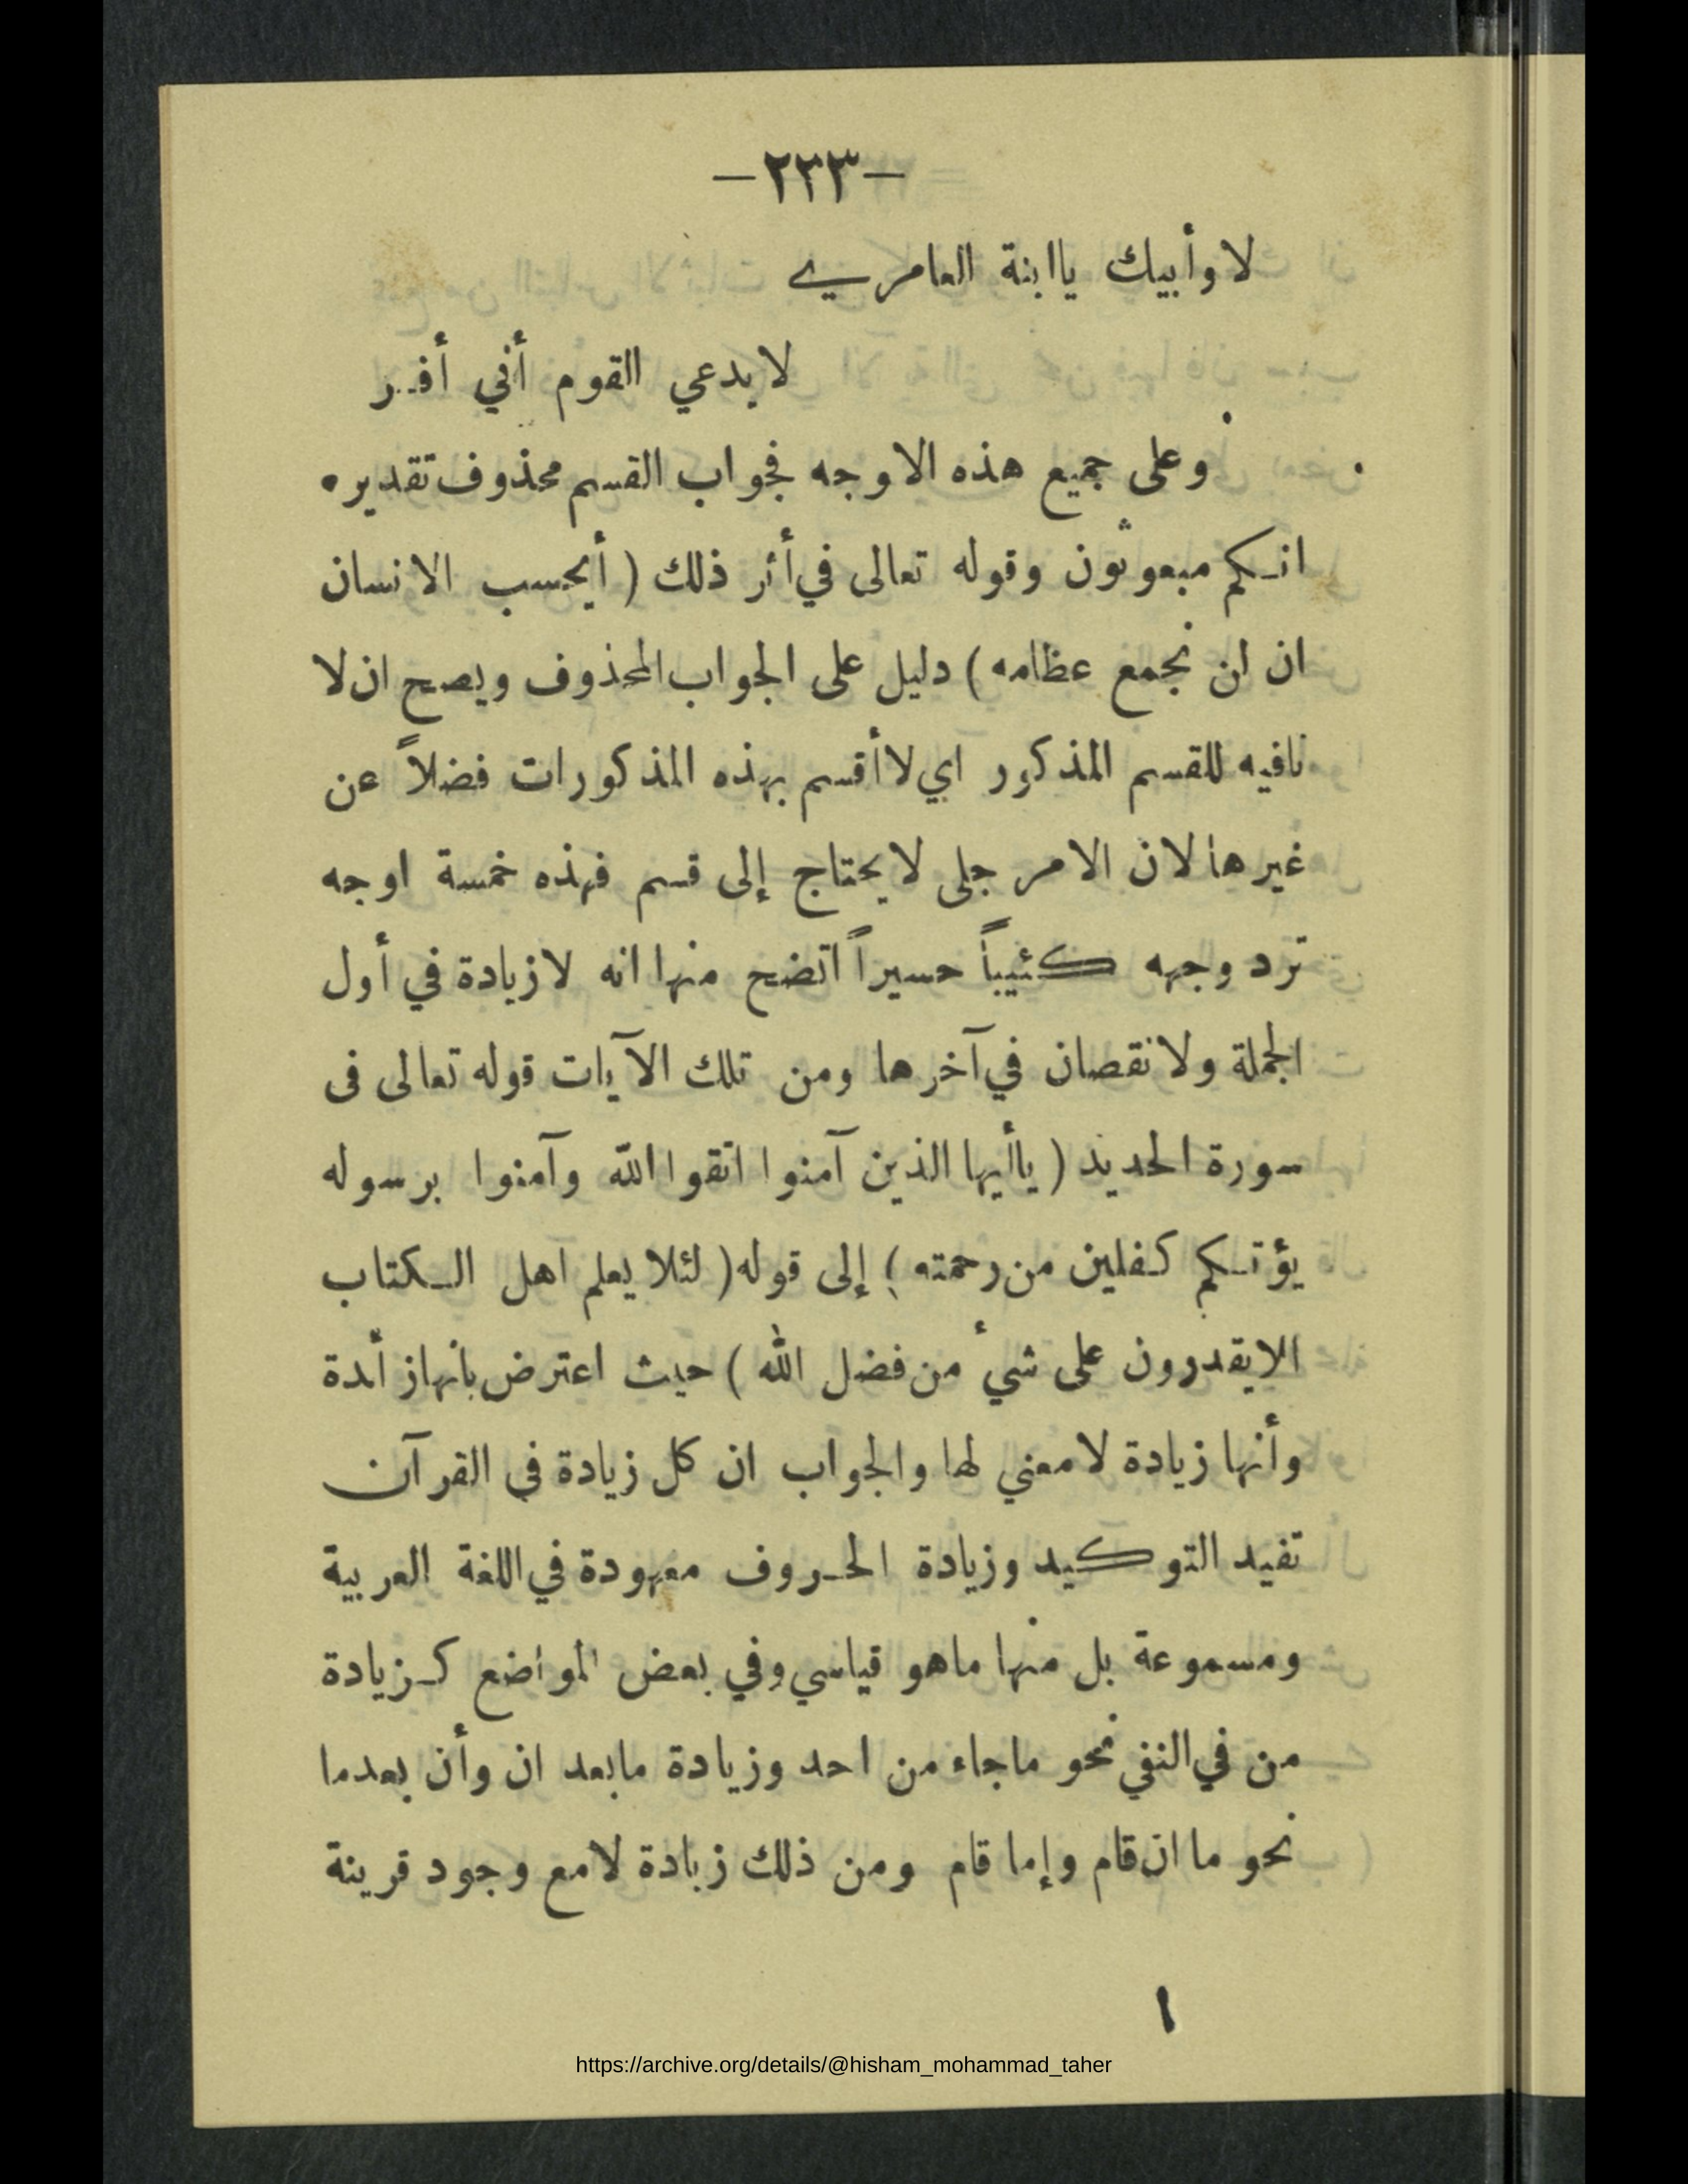 -٢٣٣-
لا وأبيك ياابنة العامرىي
لا يدعي القوم أني أفر
وعلى جميع هذه الاوجه فجواب القسم محذوف تقديره
انكم مبعوثون وقوله تعالى في أثر ذلك ( أيحسب الانسان
ان لن نجمع عظامه ) دليل على الجواب المحذوف ويصح ان لا
نافيه للقسم المذكور اي لا أقسم بهذه المذكورات فضلاً عن
غيرها لان الامر جلى لا يحتاج إلى قسم فهذه خمسة اوجه
ترد وجهه كئيباً حسيراً اتضح منها انه لا زيادة في أول
الجملة ولا نقصان في آخرها ومن تلك الآيات قوله تعالى فى
سورة الحديد ( ياأيها الذين آمنوا اتقوا الله وآمنوا برسوله
يؤتكم كفلين من رحمته ) إلى قوله ( لئلا يعلم اهل الكتاب
الا يقدرون على شيء من فضل الله ) حيث اعترض بانها زائدة
وأنها زيادة لا معني لها والجواب ان كل زيادة في القرآن
تفيد التوكيد وزيادة الحروف معهودة في اللغة العربية
ومسموعة بل منها ماهو قياسي وفي بعض المواضع كزيادة
من في النفي نحو ماجاء من احد وزيادة مابعد ان وأن بعدما
نحو ما ان قام وإما قام ومن ذلك زيادة لا مع وجود قرينة
١
https://archive.org/details/@hisham_mohammad_taher